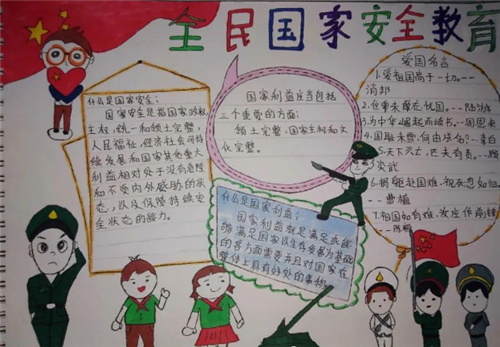 全民国家安全教育
什么是国家安全:
国家安全是指国家政权,
主权,统一和领土完整,
人民福祉,经济社会可持
续发展和国家其他重大
利益相对处于没有危险
和不受内外威胁的状
态,以及保障持续安
全状态的能力。
国家利益应当包括
三个重要的方面:
领土完整,国家主权和文
化完整。
什么是国家利益:
国家利益就是满足或能
够满足国家以生存发展为基础
的各方面需要并且对国家在
整体上具有好处的事物
爱国名言
1.爱祖国高于一切。——
肖邦
2.位卑未敢忘忧国。
3.为中华崛起而读书。——周恩来
4.国耻未雪,何由成名?——李白
5.天下兴亡,匹夫有责。
炎武
6.捐躯赴国难,视死忽如归
——曹植
7.祖国如有难,汝应作前锋
——陈毅